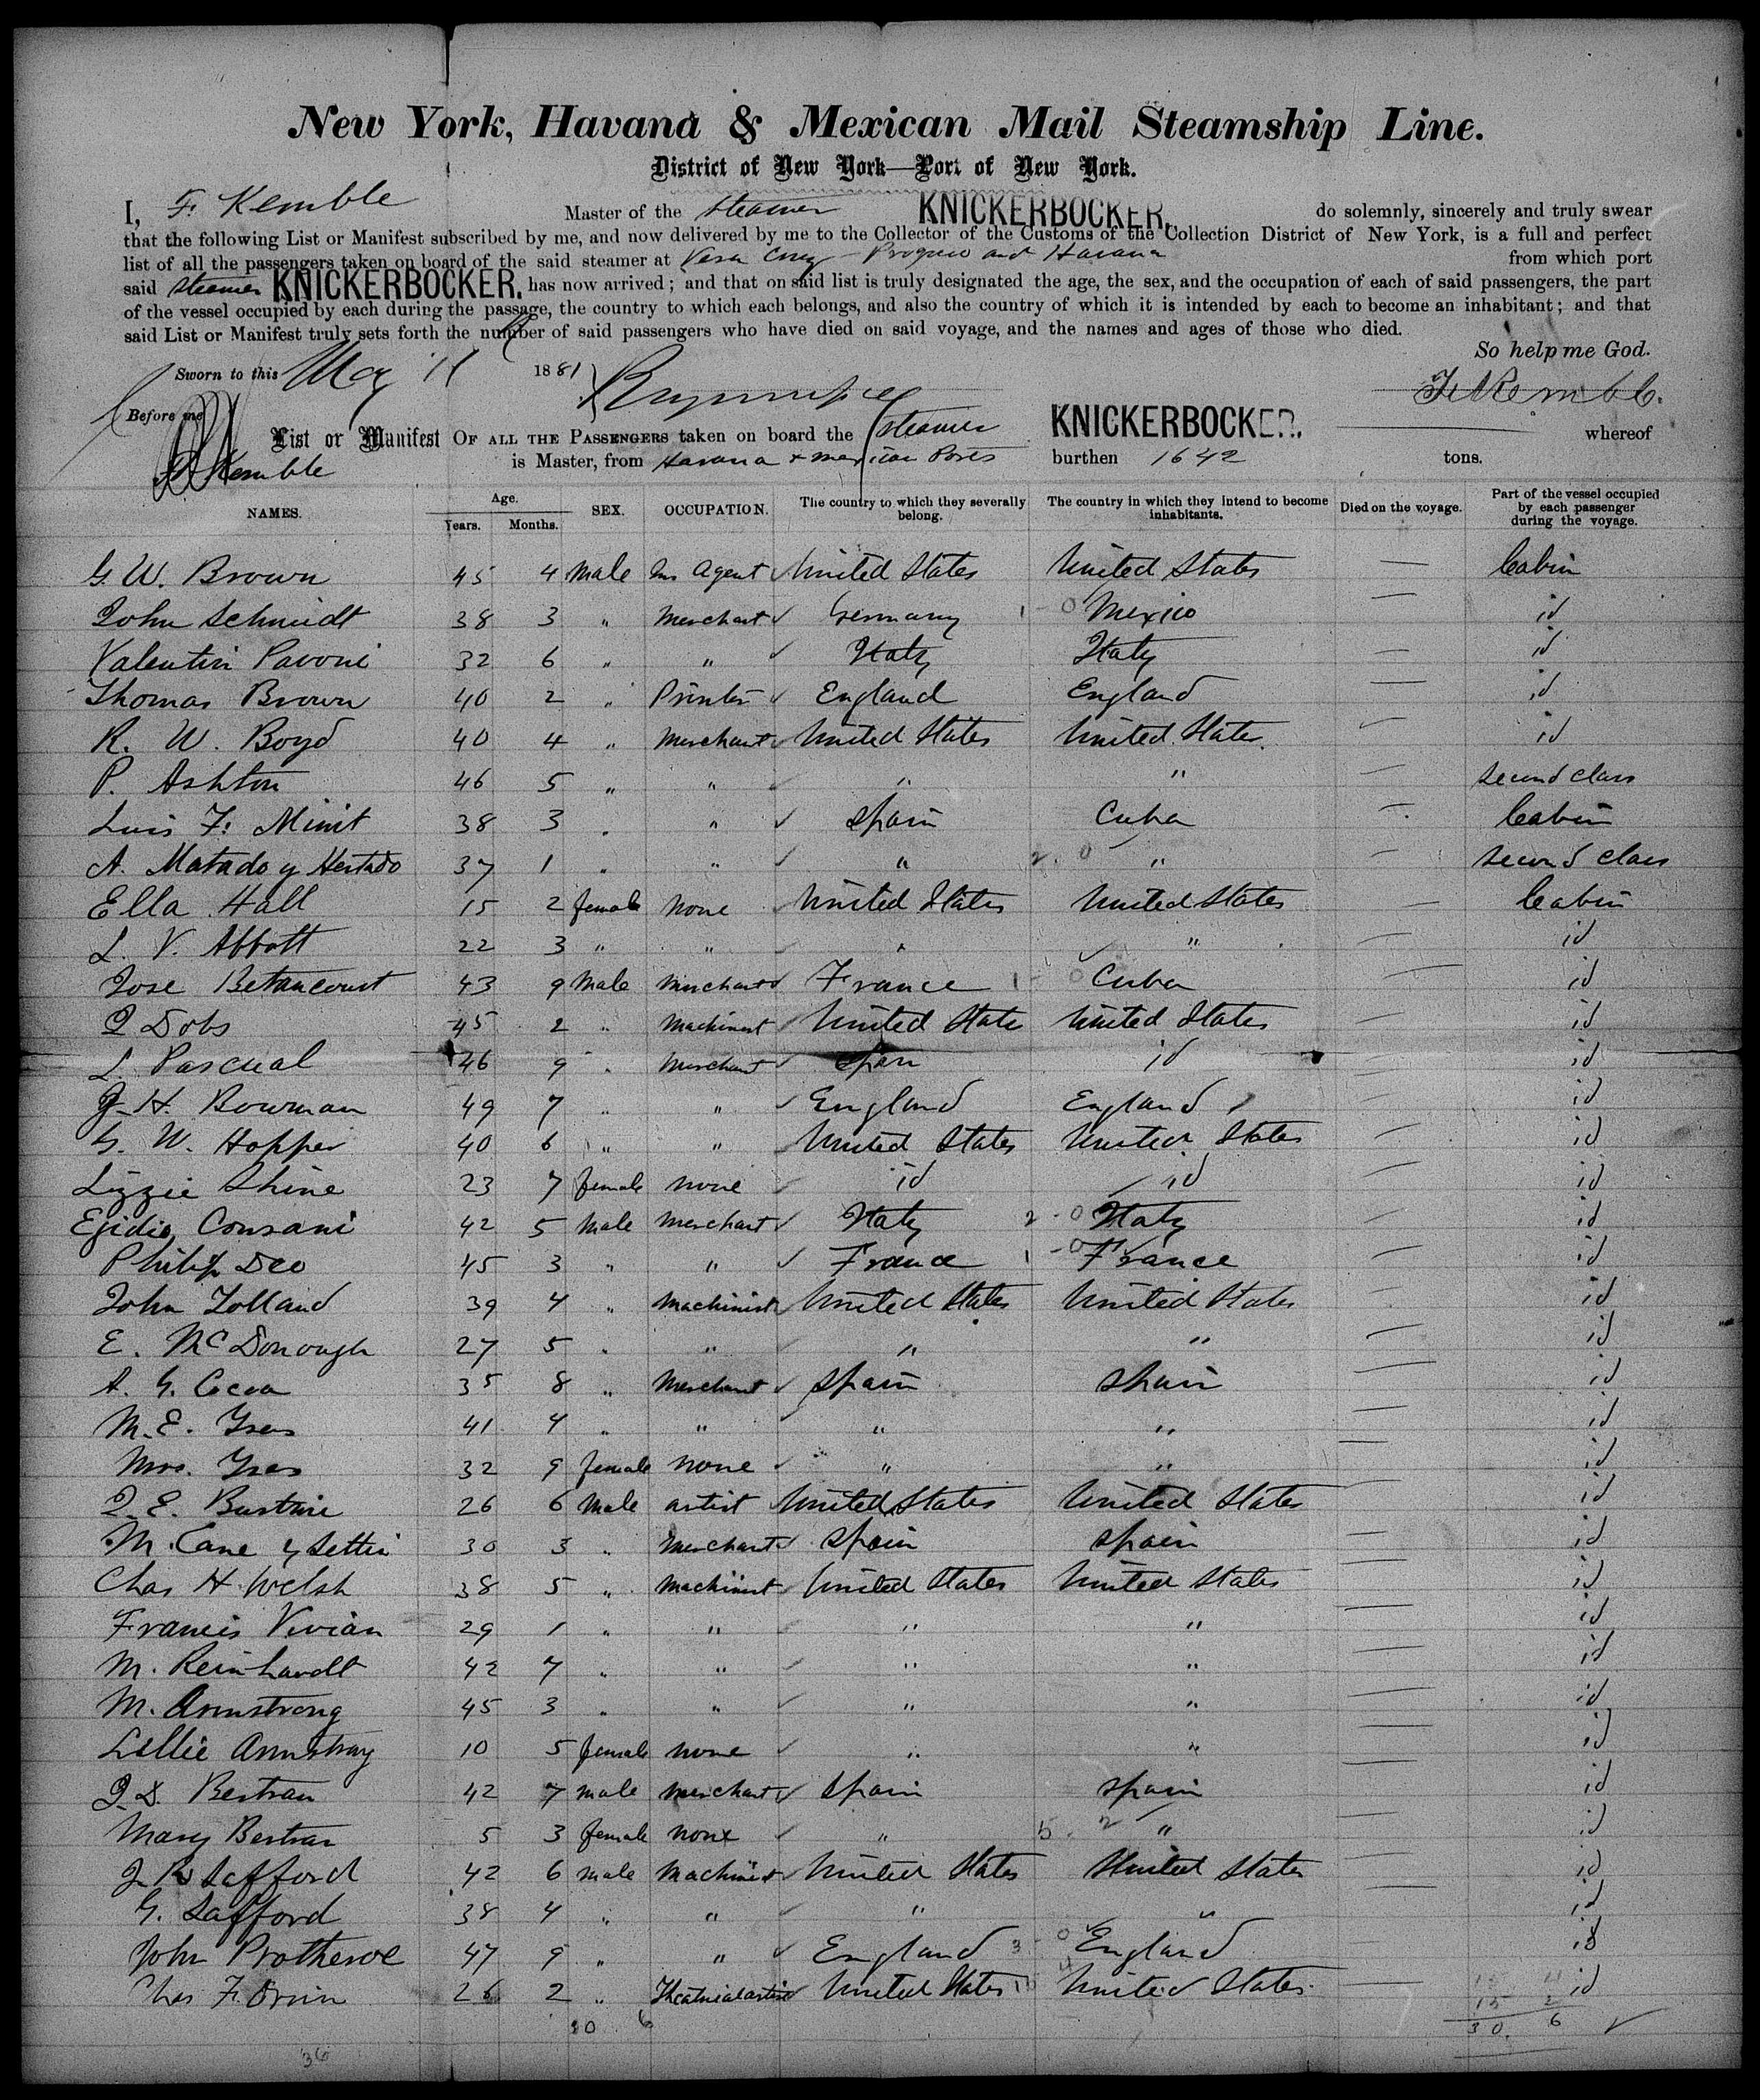 New York, Havana & Mexican Mail Steamship Line.
District of New York—Port of New York.
I, F. Kemble Master of the steamer KNICKERBOCKER. do solemnly, sincerely and truly swear
that the following List or Manifest subscribed by me, and now delivered by me to the Collector of the Customs of the Collection District of New York, is a full and perfect
list of all the passengers taken on board of the said steamer at Vera Cruz Progreso and Havana from which port
said steamer KNICKERBOCKER. has now arrived; and that on said list is truly designated the age, the sex, and the occupation of each of said passengers, the part
of the vessel occupied by each during the passage, the country to which each belongs, and also the country of which it is intended by each to become an inhabitant; and that
said List or Manifest truly sets forth the number of said passengers who have died on said voyage, and the names and ages of those who died.
So help me God.
Sworn to this May 11 1881
F. Kemble.
Before me
List or Manifest OF ALL THE PASSENGERS taken on board the steamer KNICKERBOCKER. whereof
F. Kemble is Master, from Havana & Mexican Ports burthen 1642 tons.
NAMES. Age. Years. Months. SEX. OCCUPATION. The country to which they severally belong. The country in which they intend to become inhabitants. Died on the voyage. Part of the vessel occupied by each passenger during the voyage.
G. W. Brown 45 4 Male Ins Agent United States United States — Cabin
John Schmidt 38 3 " Merchant Germany 1 - 0 Mexico — id
Valentin Pavoni 32 6 " " Italy Italy — id
Thomas Brown 40 2 " Printer England England — id
R. W. Boyd 40 4 " Merchant United States United States. — id
P. Ashton 46 5 " " " " — second class
Luis F. Minit 38 3 " " Spain Cuba — Cabin
A. Matado y Hertado 37 1 " " " 2 - 0 " — second class
Ella Hall 15 2 female none United States United States — Cabin
L. V. Abbott 22 3 " " " " — id
Jose Betancourt 43 9 Male Merchant France 1 - 0 Cuba — id
J Dobs 45 2 " Machinist United State United States — id
L. Pascual 46 9 " Merchant Spain id — id
J. H. Bowman 49 7 " " England England — id
G. W. Hopper 40 6 " " United States United States — id
Lizzie Shine 23 7 female none id id — id
Egidio Consani 42 5 Male Merchant Italy 2 - 0 Italy — id
Philip Deo 45 3 " " France 1 - 0 France — id
John Tolland 39 4 " Machinist United States United States — id
E. McDonough 27 5 " " " " — id
A. G. Cocoa 35 8 " Merchant Spain Spain — id
M. E. 41 4 " " " " — id
Mrs. 32 9 female none " " — id
J. E. 26 6 Male artist United States United States — id
M. Cane y 30 3 " Merchant Spain Spain — id
Chas H. Welsh 38 5 " Machinist United States United States — id
Francis Vivian 29 1 " " " " — id
M. Reinhardt 42 7 " " " " — id
M. Armstrong 45 3 " " " " — id
Lillie Armstrong 10 5 female none " " — id
J. D. Bertran 42 7 male merchant Spain Spain — id
Mary Bertran 5 3 female none " 5 . 2 " — id
J. R. Safford 42 6 male Machinist United States United States — id
G. Safford 38 4 " " " " — id
John Protheroe 47 9 " " England 3 - 0 England — id
Chas F. Orrin 26 2 " Theatrical artist United States United States. — id
30 6
15 4
15 2
30. 6
36